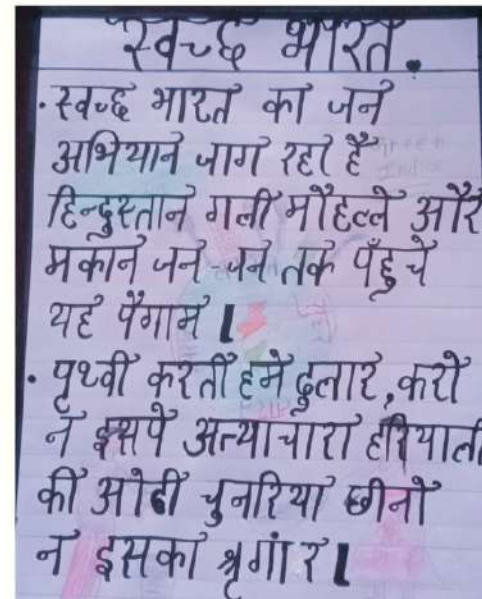 स्वच्छ भारत.
• स्वच्छ भारत का जन
अभियान जाग रहा है
हिन्दुस्तान गली मौहल्ले और
मकान जन-जन तक पँहुचे
यह पैगाम।
• पृथ्वी करती हमे दुलार, करो
न इसपे अत्याचारा हरियाली
की ओढी चुनरिया छीनो
न इसका श्रृगांर।